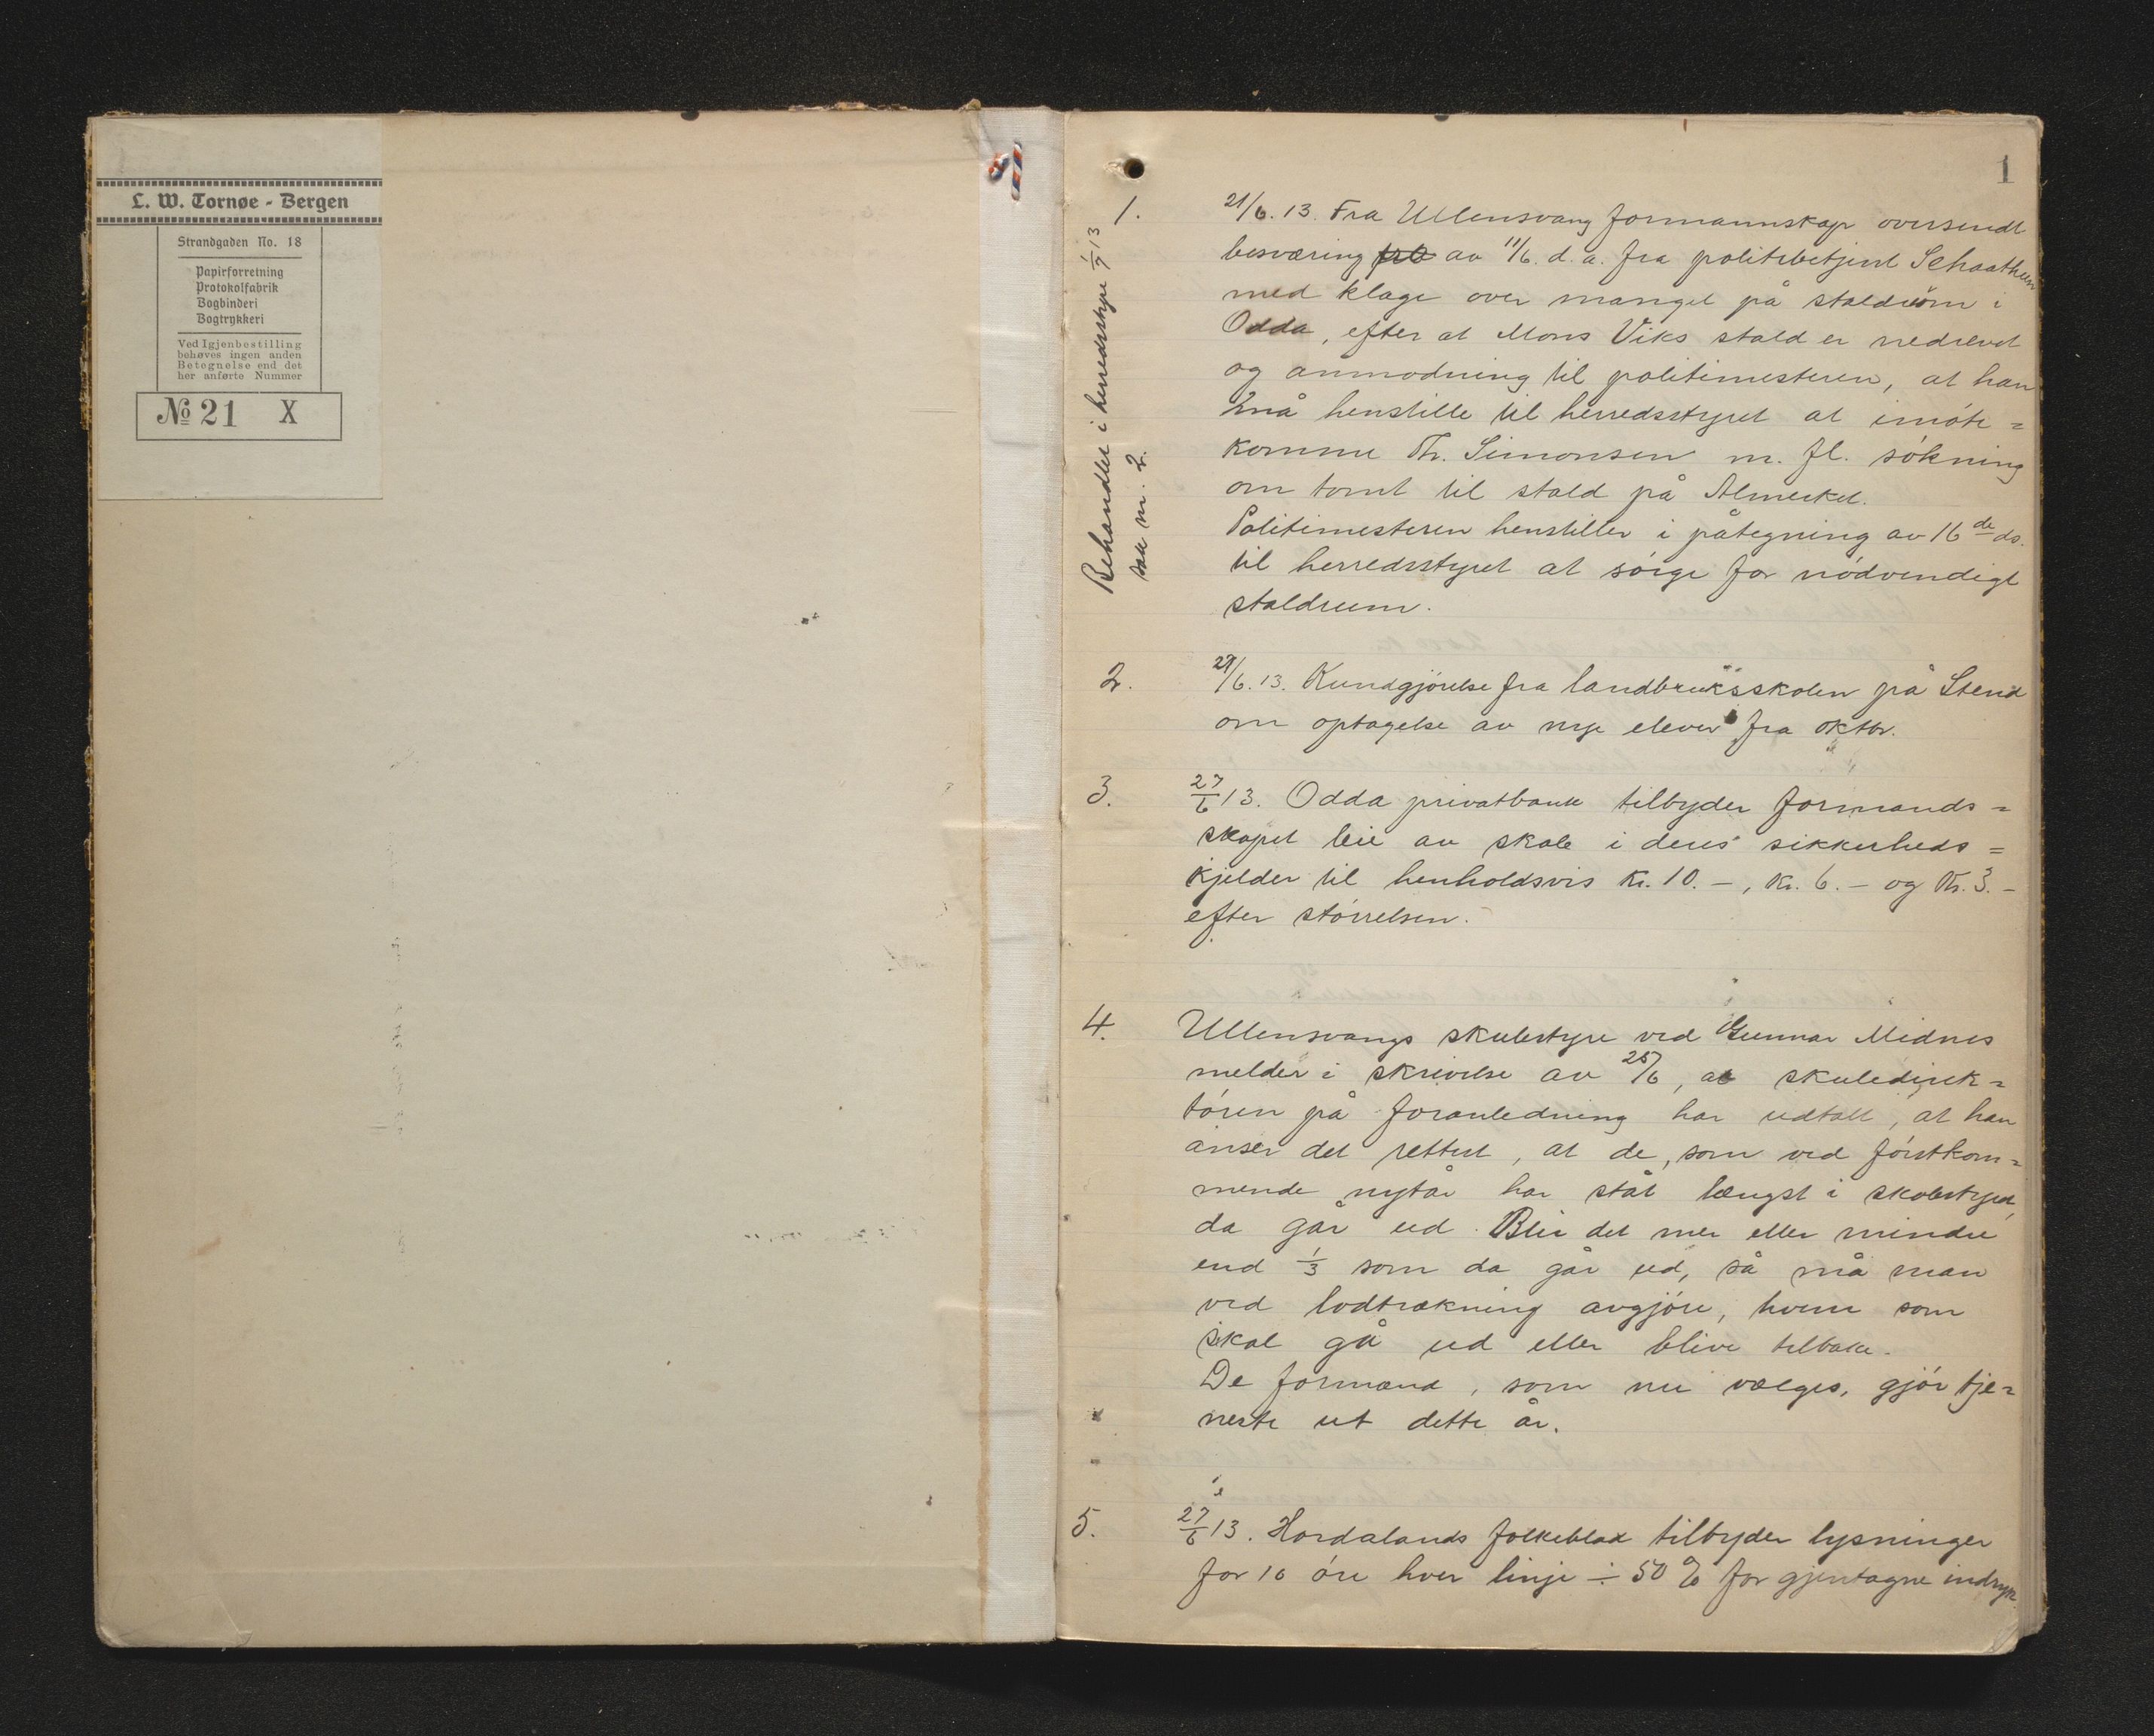 L. W. Tornøe - Bergen
Strandgaden No. 18
Papirforretning
Protokolfabrik
Bogbinderi
Bogtrykkeri
Ved Igjenbestilling
behøves ingen anden
Betegnelse end det
her anførte Nummer
№ 21 X
1
Behandlet i herredsstyre 1/7 13
sak nr. 2.
1. 21/6. 13. Fra Ullensvang formannskap oversendt
besværing fra av 11/6. d. a. fra politibetjent Schaathun
med klage over mangel på staldrum i
Odda, efter at Mons Viks stald er nedrevet
og anmodning til politimesteren, at han
må henstille til herredsstyret at imøte=
komme Th. Simonsen m. fl. søkning
om tomt til stald på Almerket.
Politimesteren henstiller i påtegning av 16de ds.
til herredsstyret at sørge for nødvendigt
staldrum.
2. 27/6. 13. Kundgjørelse fra landbruksskolen på Stend
om optagelse av nye elever fra oktbr.
3. 27/6 13. Odda privatbank tilbyder formands=
skapet leie av skabe i deres sikkerheds=
kjelder til henholdsvis Kr. 10.-, Kr. 6.- og Kr. 3.-
efter størrelsen.
4. Ullensvangs skulestyre ved Gunnar Midnes
melder i skrivelse av 25/6, at skuledirek=
tøren på foranledning har udtalt, at han
anser det rettest, at de, som ved førstkom=
mende nytår har ståt længst i skolestyret,
da går ud. Blir det mer eller mindre
end 1/3 som da går ud, så må man
ved lodtrækning avgjøre, hvem som
skal gå ud eller blive tilbake.
De formænd, som nu vælges, gjør tje=
neste ut dette år.
5. 27/6 13. Hordalands folkeblad tilbyder lysninger
for 10 øre hver linje ÷ 50 % for gjentagne indryk.